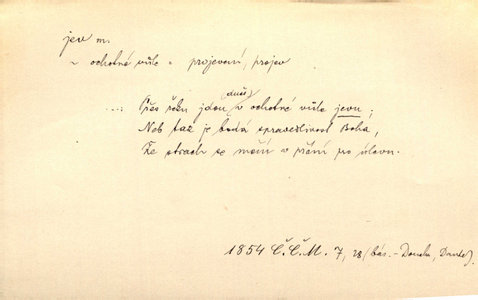 jev m.
~ ochotné vůle = projevení, projev
...: Přes řeku jdou (duše) v ochotné vůle jevu;
Neb tak je bodá spravedlivost Boha,
Že strach se mění v přání pro úlevu.
1854 Č.Č.M. 7, 28 (bás. - Doucha, Dante).